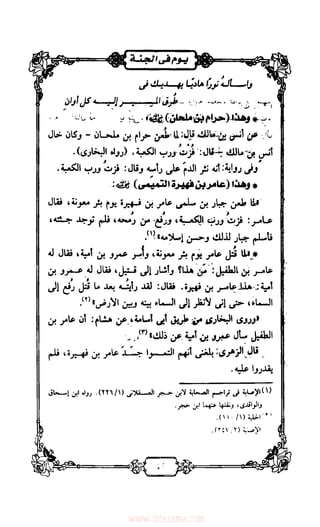 يوم في الجنة
* وهذا (حرام بن ملحان) ﷺ:
عن أنس بن مالك قال: لما طعن حرام بن ملحان - وكان خاله
أنس بن مالك - قال: فزت ورب الكعبة. (رواه البخاري).
وفي رواية: أنه نضح الدم على رأسه وقال: فزت ورب الكعبة.
* وهذا (عامر بن فهيرة التميمي) ﷺ:
لما طعن جبار بن سلمى عامر بن فهيرة يوم بئر معونة، فقال
عامر: فزت ورب الكعبة، ورفع من رمحه، فلم توجد جثته،
فأسلم جبار لذلك وحسن إسلامه(١).
* لما قتل عامر يوم بئر معونة، وأسر عمرو بن أمية، قال له
عامر بن الطفيل: من هذا؟ وأشار إلى قتيل، فقال له عمرو بن
أمية: هذا عامر بن فهيرة. فقال: لقد رأيته بعد ما قتل رفع إلى
السماء، حتى إني لأنظر إلى السماء بينه وبين الأرض(٢).
وروى البخاري من طريق أبي أسامة، عن هشام: أن عامر بن
الطفيل سأل عمرو بن أمية عن ذلك(٣).
وقال الزهري: بلغني أنهم التمسوا جسد عامر بن فهيرة، فلم
يقدروا عليه.
(١) الإصابة في تراجم الصحابة لابن حجر العسقلاني (٢٢٦/١). رواه ابن إسحاق
والواقدي، ونقلها عنهما ابن حجر.
(٢) الحلية (١/١١٠).
(٣) الإصابة (٢٤٧/٢).
www.ibtesama.com